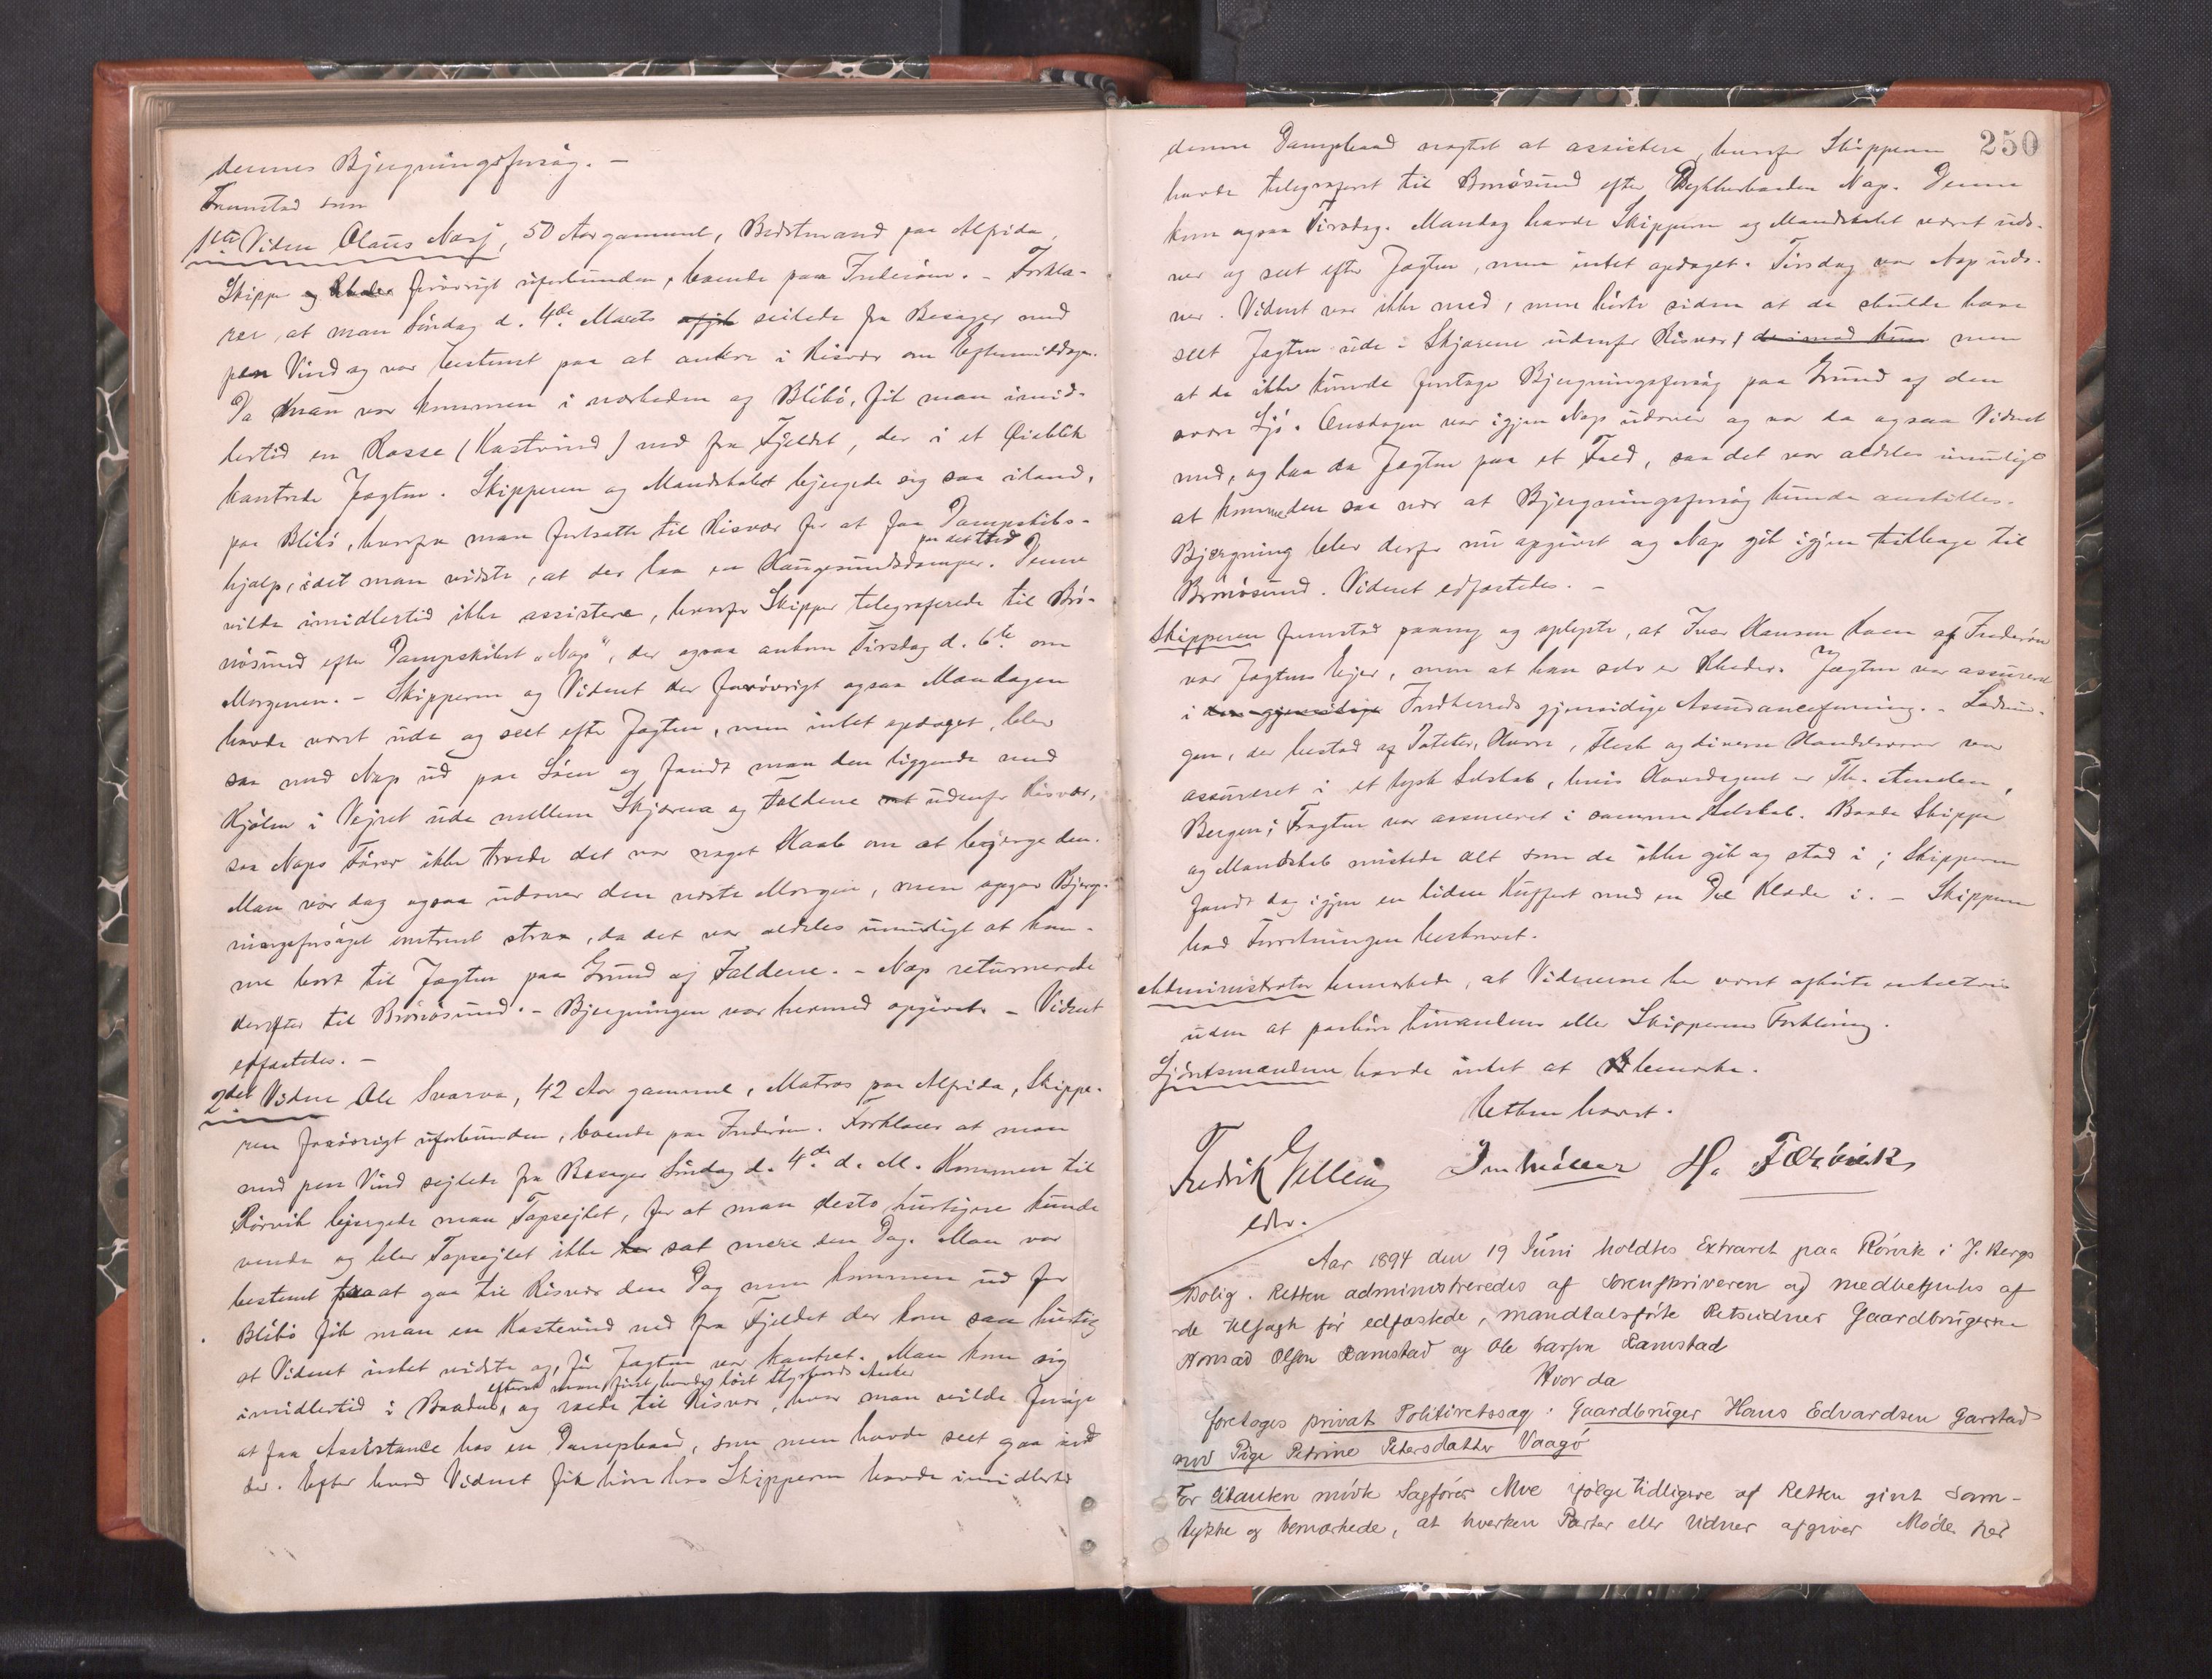 dennes Bjergningsforsøg. –
Fremstod som
1ste Vidne Claus Næsj, 50 Aar gammel, Bedstmand paa Alfrida,
Skipper og Rheder forøvrigt uforbunden, boende paa Frederøen. – Forkla-
rer, at man Søndag d. 4de Marts afgik seilede fra Besager med
pen Vind og var bestemt paa at ankre i Risvær om Eftermiddagen.
Da man var kommen i nærheden af Blikø, fik man imid-
lertid en Rosse (Kastvind) ned fra Fjeldet, der i et Øieblik
kantrede Jagten. Skipperen og Mandskabet bjergede sig saa iland,
paa Blikø, hvorfra man fortsatte til Risvær for at faa Dampskibs-
hjælp, idet man vidste, at der laa en Haugesundsdamper paa det Sted. Denne
vilde imidlertid ikke assistere, hvorfor Skipper telegraferede til Brø-
nøsund efter Dampskibet „Nap", der ogsaa ankom Tirsdag d. 6te om
Morgenen. – Skipperen og Vidnet der forøvrigt ogsaa Mandagen
havde været ude og seet efter Jagten, men intet opdaget, blev
saa med Nap ud paa Søen og fandt man den liggende med
Kjølen i Vejret ude mellem Skjærene og Faldene udenfor Risvær,
saa Naps Fører ikke troede det var noget Haab om at bjerge den.
Man var dog ogsaa udover den næste Morgen, men opgav Bjerg-
ningsforsøget omtrent strax, da det var aldeles umuligt at kom-
me bort til Jagten paa Grund af Faldene. – Nap returnerede
derefter til Brønøsund. – Bjergningen var hermed opgivet. – Vidnet
edfæstedes. –
2det Vidne Ole Svarva, 42 Aar gammel, Matros paa Alfrida, Skippe-
ren forøvrigt uforbunden, boende paa Frederøen. Forklarer at man
med pen Vind sejlede fra Besager Søndag d. 4de d. M. Kommen til
Rørvik bjergede man Topsejlet, for at man desto hurtigere kunde
vende og blev Topsejlet ikke sat mere den Dag. Man var
bestemt paa at gaa til Risvær den Dag men kommen ud for
Blikø fik man en Kastevind ned fra Fjeldet der kom saa hurtig
at Vidnet intet vidste af, før Jagten var kantret. Man kom sig
imidlertid i Baaden, efterat man først havde løst Styrbords Anker og roede til Risvær, hvor man vilde forsøge
at faa Assistance hos en Dampbaad, som man havde seet gaa ind
der. Efter hvad Vidnet fik høre hos Skipperen havde imidlertid
250
denne Dampbaad nægtet at assistere, hvorfor Skipperen
havde telegraferet til Brønøsund efter Dykkerbaaden Nap. Denne
kom ogsaa Tirsdag. Mandag havde Skipperen og Mandskabet været udo-
ver og seet efter Jagten, men intet opdaget. Tirsdag var Nap udo-
ver. Vidnet var ikke med, men hørte siden at de skulde have
seet Jagten ude i Skjærene udenfor Risvær, derimod kun men
at de ikke kunde foretage Bjergningsforsøg paa Grund af den
svære Sjø. Onsdagen var igjen Nap udover og var da ogsaa Vidnet
med, og laa da Jagten paa et Fald, saa det var aldeles umuligt
at komme den saa nær at Bjergningsforsøg kunde anstilles.
Bjærgning blev derfor nu opgivet og Nap gik igjen tilbage til
Brønøsund. Vidnet edfæstedes. –
Skipperen fremstod paany og oplyste, at Ivar Hansen Kaen af Frederøen
var Jagtens Ejer, men at han selv er Rheder. Jagten var assureret
i den gjensidige Indherreds gjensidige Assuranceforening. – Ladnin-
gen, der bestod af Poteter, Havre, Flesk og diverse Handelsvarer var
assureret i et tysk Selskab, hvis Hovedagent er Th. Amelen,
Bergen; Fragten var assureret i samme Selskab. Baade Skipper
og Mandskab mistede alt som de ikke gik og stod i; Skipperen
fandt dog igjen en liden Kuffert med en Del Klæder i. – Skipperen
bad Forretningen beskrevet.
Administrator bemærkede, at Vidnerne har været afhørte enkeltvis
uden at paahøre hinandens eller Skipperens Forklaring.
Sjøretsmændene havde intet at bemærke.
Retten hævet.
Fredrik Gelling
edv.
H. Færøvik
Aar 1894 den 19 Juni holdtes Extraret paa Rørvik i J. Bergs
Bolig. Retten administreredes af Sorenskriveren og medbetjentes af
de tilsagte før edfæstede, mandtalsførte Retsvidner Gaardbrugerne
Konrad Olsen Ramstad og Ole Larsen Ramstad
Hvor da
foretoges privat Politiretssag: Gaardbruger Hans Edvardsen Garstad
mod Pige Petrine Petersdatter Vaagø
For Citanten mødte Sagfører Moe ifølge tidligere af Retten givet Sam-
tykke og bemærkede, at hverken Parter eller Vidner afgiver Møde her